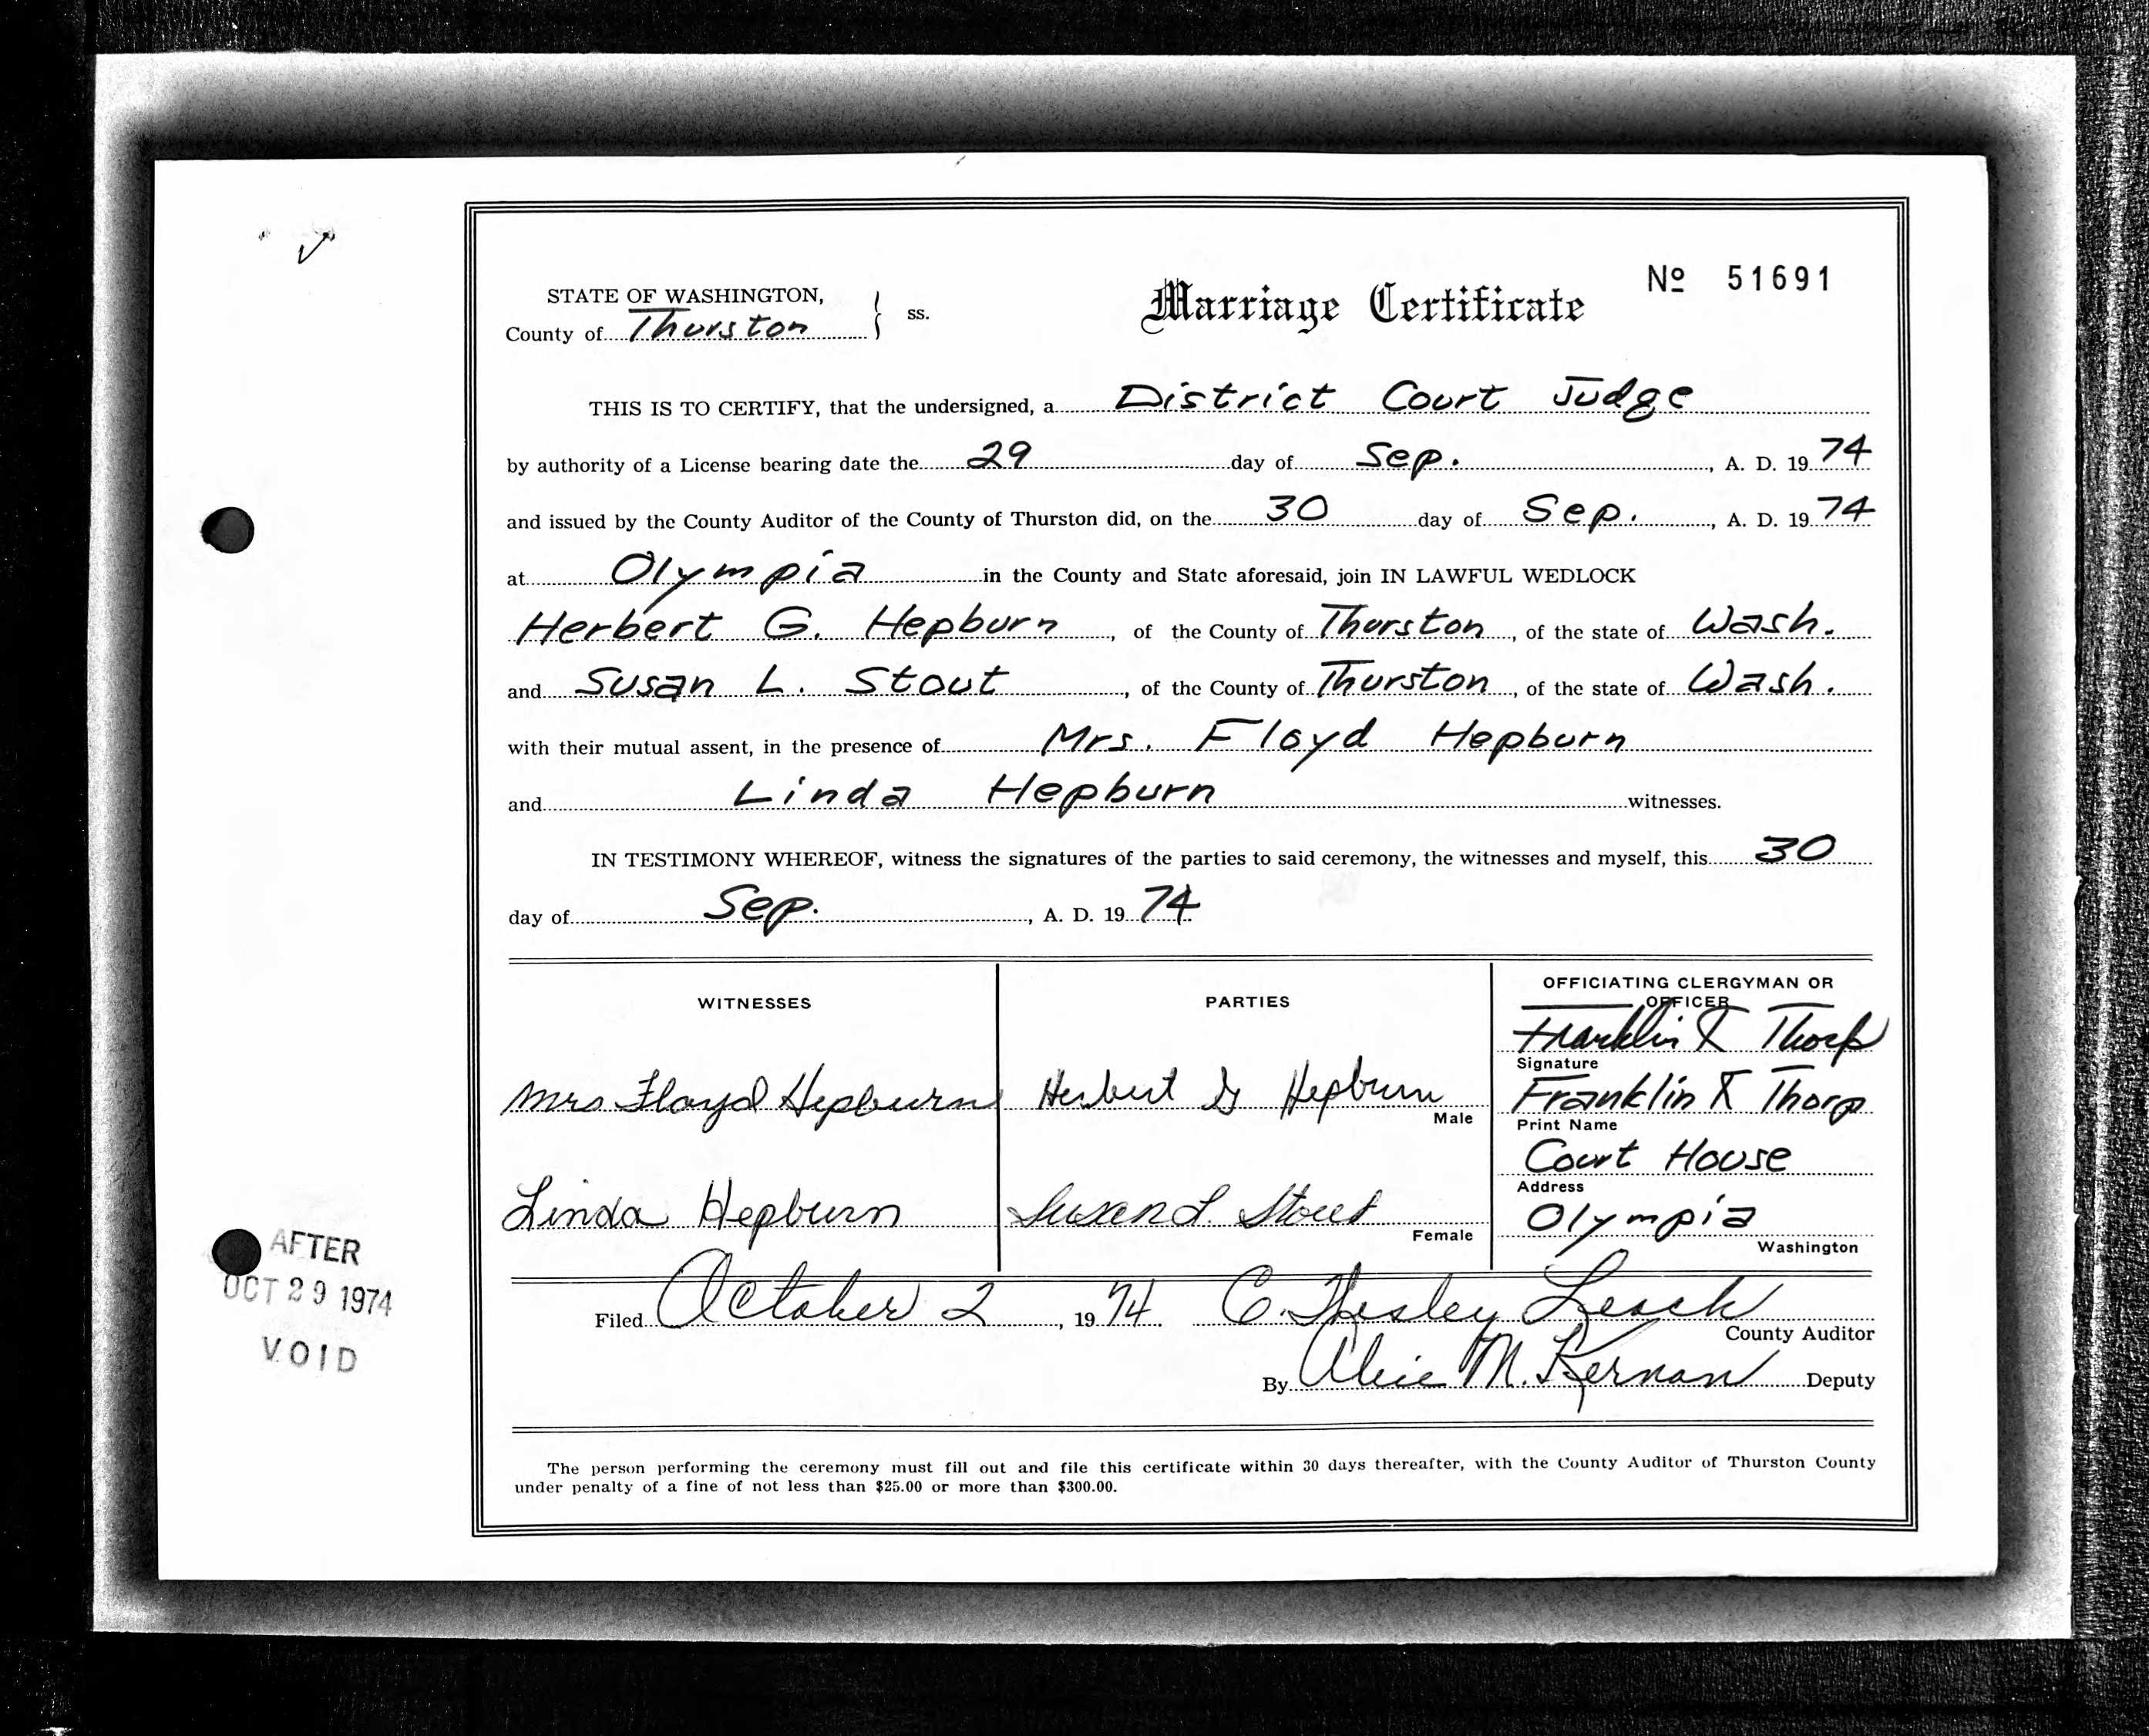 STATE OF WASHINGTON,
County of Thurston } ss.
Marriage Certificate
Nº 51691
THIS IS TO CERTIFY, that the undersigned, a District Court Judge
by authority of a License bearing date the 29 day of Sep., A. D. 19 74
and issued by the County Auditor of the County of Thurston did, on the 30 day of Sep., A. D. 19 74
at Olympia in the County and State aforesaid, join IN LAWFUL WEDLOCK
Herbert G. Hepburn, of the County of Thurston, of the state of Wash.
and Susan L. Stout, of the County of Thurston, of the state of Wash.
with their mutual assent, in the presence of Mrs. Floyd Hepburn
and Linda Hepburn witnesses.
IN TESTIMONY WHEREOF, witness the signatures of the parties to said ceremony, the witnesses and myself, this 30
day of Sep., A. D. 19 74
WITNESSES
Mrs Floyd Hepburn
Linda Hepburn
PARTIES
Herbert G Hepburn
Male
Susan L. Stout
Female
OFFICIATING CLERGYMAN OR
OFFICER
Franklin K Thorp
Signature
Franklin K Thorp
Print Name
Court House
Address
Olympia
Washington
AFTER
OCT 29 1974
VOID
Filed October 2, 19 74. C. Wesley Leach
County Auditor
By Alice M. Kernan Deputy
The person performing the ceremony must fill out and file this certificate within 30 days thereafter, with the County Auditor of Thurston County
under penalty of a fine of not less than $25.00 or more than $300.00.